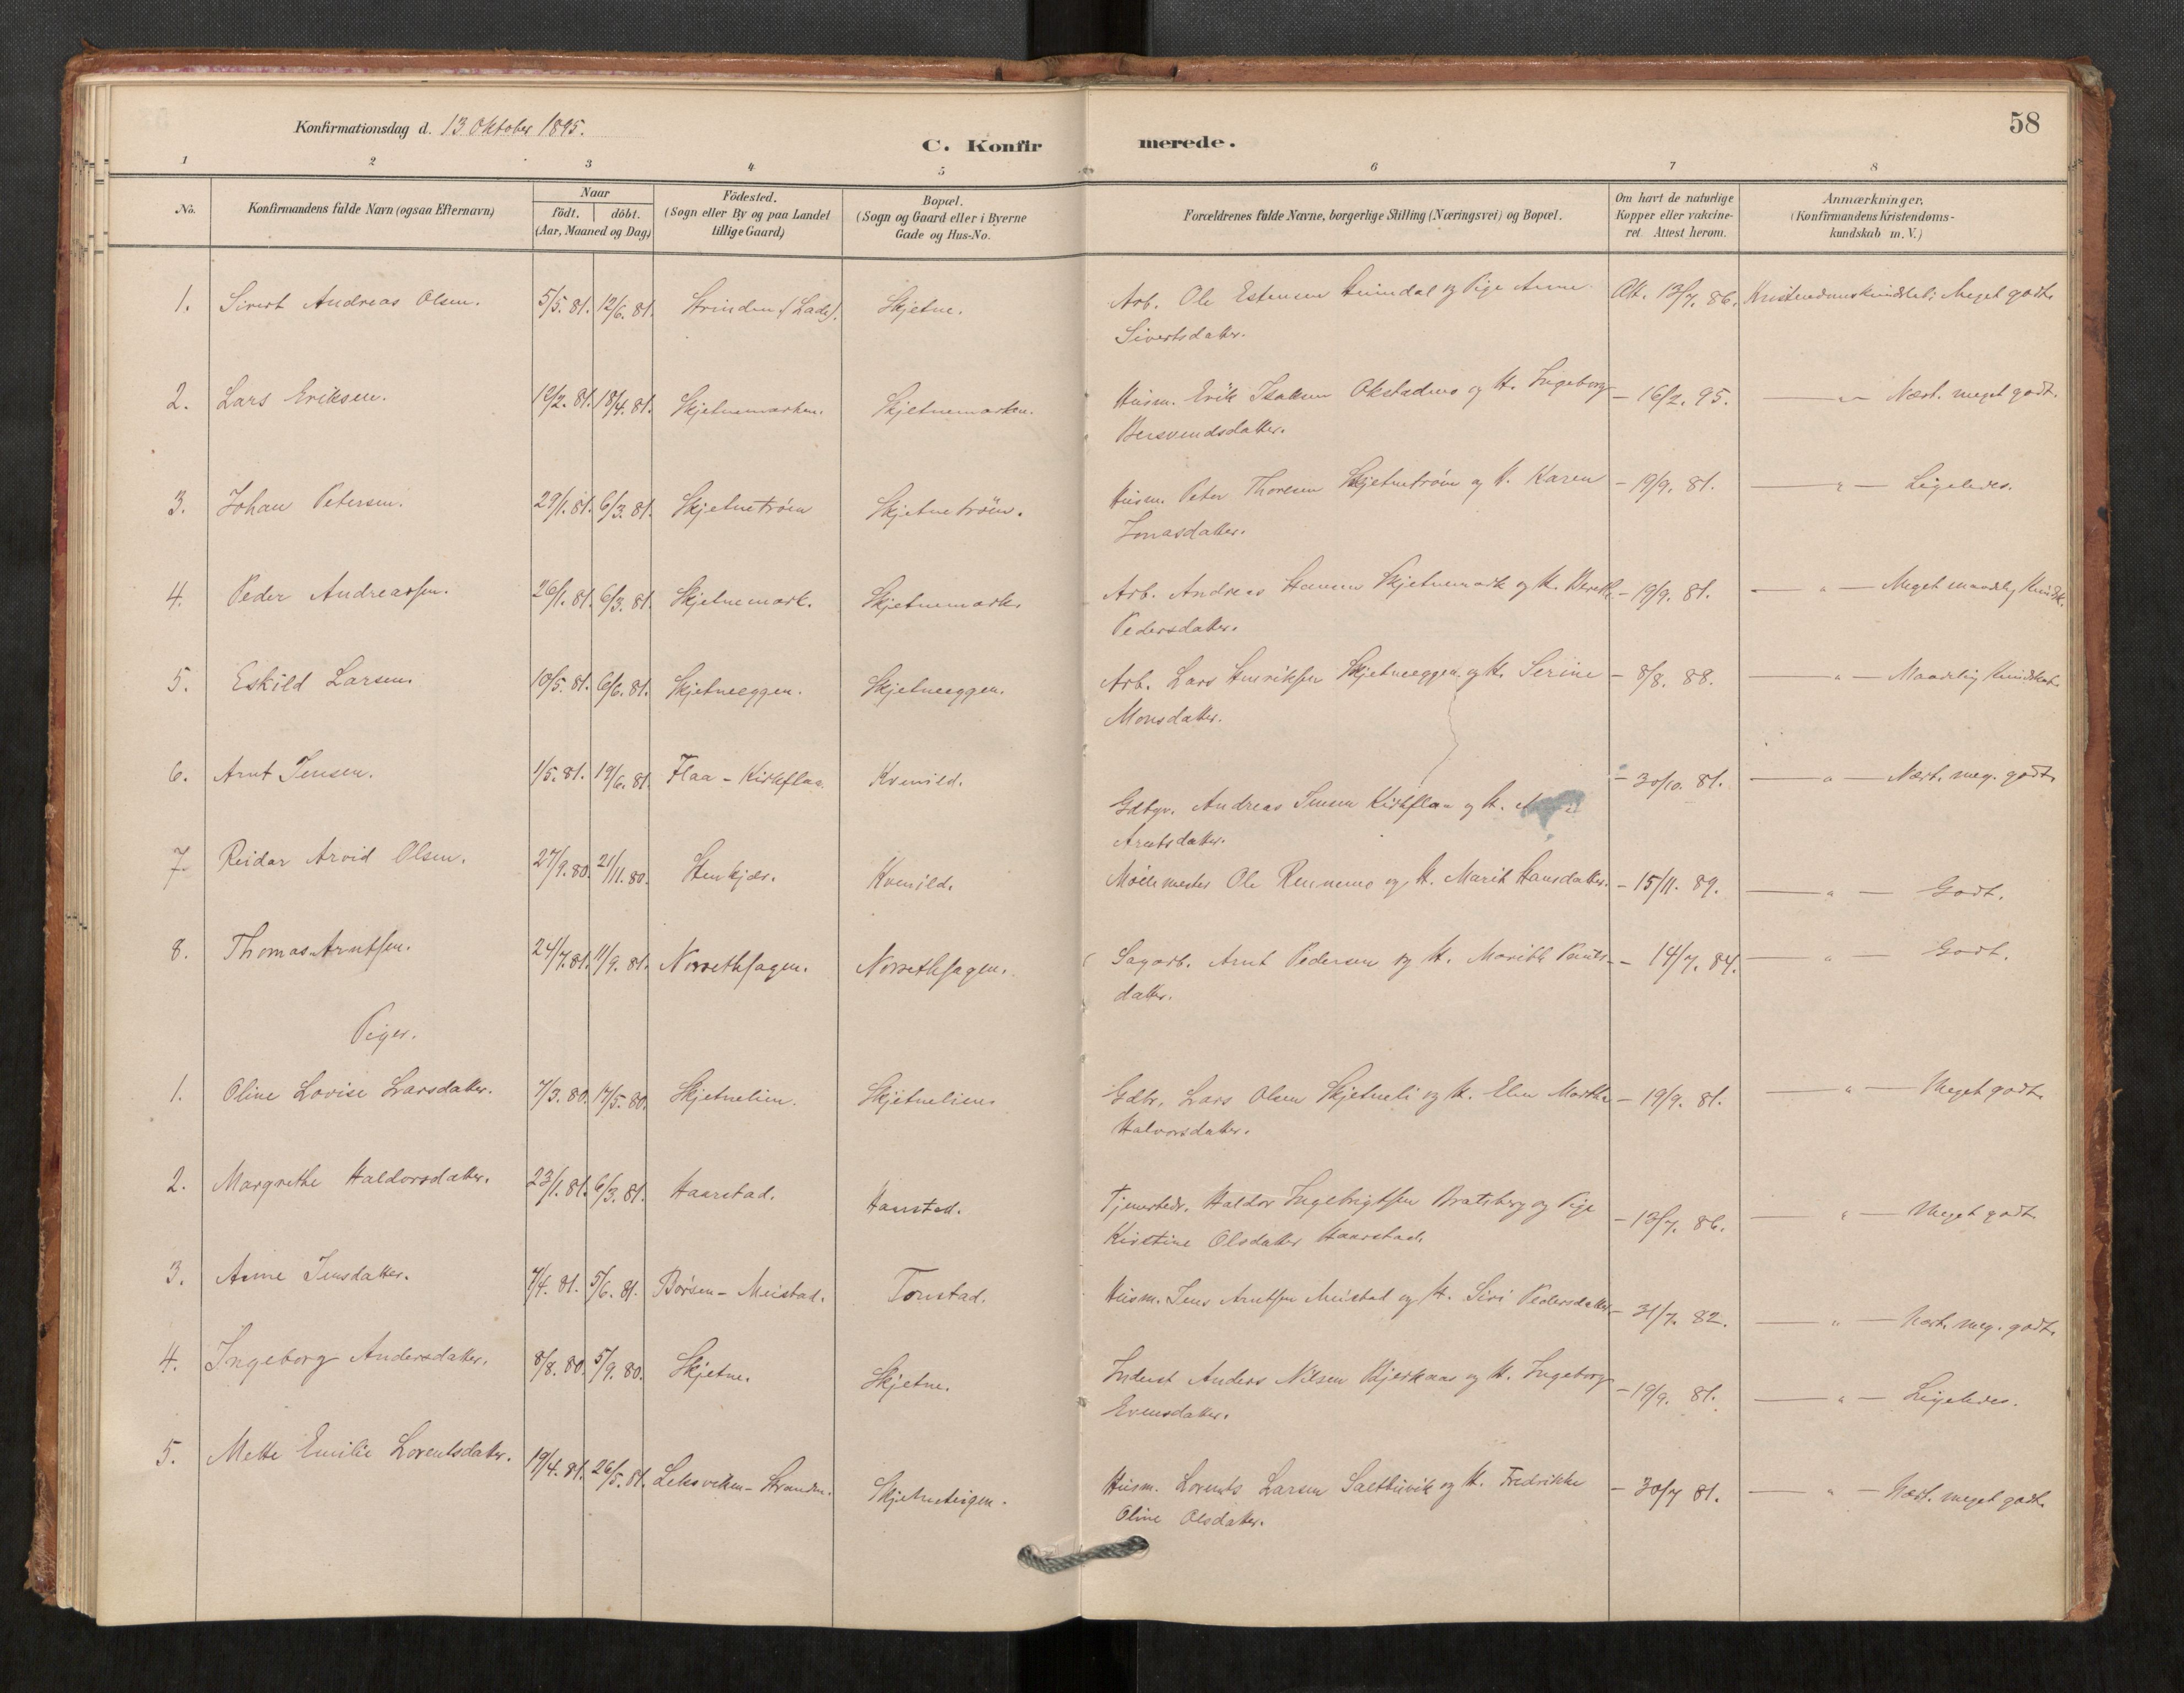 58
Konfirmationsdag d. 13 Oktober 1895.
C. Konfirmerede.
1 2 3 4 5 6 7 8
No.
Konfirmandens fulde Navn (ogsaa Efternavn)
Naar
født. døbt.
(Aar, Maaned og Dag)
Fødested.
(Sogn eller By og paa Landet
tillige Gaard)
Bopæl.
(Sogn og Gaard eller i Byerne
Gade og Hus-No.
Forældrenes fulde Navne, borgerlige Stilling (Næringsvei) og Bopæl.
Om havt de naturlige
Kopper eller vakcine-
ret Attest herom.
Anmærkninger,
(Konfirmandens Kristendoms-
kundskab m. V.)
1. Sivert Andreas Olsen. 5/5. 81. 12/6. 81. Strinden (Lade). Skjetne. Arb. Ole Estensen Heimdal og Pige Anne Att. 13/7. 86. Kristendomskundskab: Meget godt.
Sivertsdatter.
2. Lars Eriksen. 12/2. 81. 18/4. 81. Skjetnemarken. Skjetnemarken. Husm. Erik Isaksen Okstadmo og H. Ingeborg - 16/2. 95. — " — Næst. meget godt.
Bersvendsdatter.
3. Johan Petersen. 29/1. 81. 6/3. 81. Skjetnetrøen Skjetnetrøen. Husm. Peter Thoresen Skjetnetrøen og H. Karen - 19/9. 81. — " — Ligeledes.
Jonasdatter.
4. Peder Andreassen. 26/1. 81. 6/3. 81. Skjetnemark. Skjetnemark. Arb. Andreas Hansen Skjetnemark og H. - 19/9. 81. — " — Meget maadelig Kundsk.
Pedersdatter.
5. Eskild Larsen. 10/5. 81. 6/6. 81. Skjetneeggen. Skjetneeggen. Arb. Lars Henriksen Skjetneeggen og H. Serine - 8/8. 88. — " — Maadelig Kundskab.
Monsdatter.
6. Arnt Jensen. 1/5. 81. 19/6. 81. Flaa - Kirkflaa. Kvenild. - 30/10. 81. — " — Næst. meg. godt.
Gdbgr. Andreas Jensen Kirkflaa og H.
Arntsdatter.
7. Reidar Arvid Olsen. 27/9. 80. 21/11. 80. Stenkjær. Kvenild. Møllemester Ole Rennemo og H. Marit Hansdatter. - 15/11. 89. — " — Godt.
8. Thomas Arntsen. 24/7. 81. 11/9. 81. Norrethsagen. Norrethsagen. Sagarb. Arnt Pedersen og H. Marith - 14/7. 84. — " — Godt.
datter.
Piger.
1. Oline Lovise Larsdatter. 7/3. 80. 17/5. 80. Skjetnelien. Skjetnelien. Gdbr. Lars Olsen Skjetneli og H. Elen Martha - 19/9. 81. — " — Meget godt.
Halvorsdatter.
2. Margrethe Haldorsdatter. 23/1. 81. 6/3. 81. Haarstad. Haarstad. Tjenestedr. Haldor Ingebrigtsen Bratsberg og Pige - 13/7. 86. — " — Meget godt.
Kirstine Olsdatter Haarstad.
3. Anne Jensdatter. 7/4. 81. 5/6. 81. Børsen - Meistad. Tonstad. Husm. Jens Arntsen Meistad og H. Siri Pedersdatter - 31/7. 82. — " — Næst. meg. godt.
4. Ingeborg Andersdatter. 8/8. 80. 5/9. 80. Skjetne. Skjetne. Inderst Anders Nilsen og H. Ingeborg - 19/9. 81. — " — Ligeledes.
Evensdatter.
5. Mette Emilie Lorentsdatter. 19/4. 81. 26/5. 81. Leksviken - Stranden. Skjetneteigen. Husm. Lorents Larsen Saltbuvik og H. Fredrikke - 30/7 81. — " — Næst. meget godt.
Oline Olsdatter.